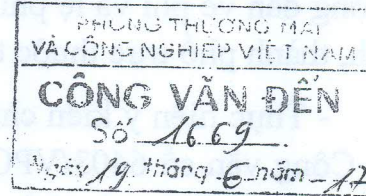 PHÒNG THƯƠNG MẠI
VÀ CÔNG NGHIỆP VIỆT NAM
CÔNG VĂN ĐẾN
Số 1669
Ngày 19 tháng 6 năm 17